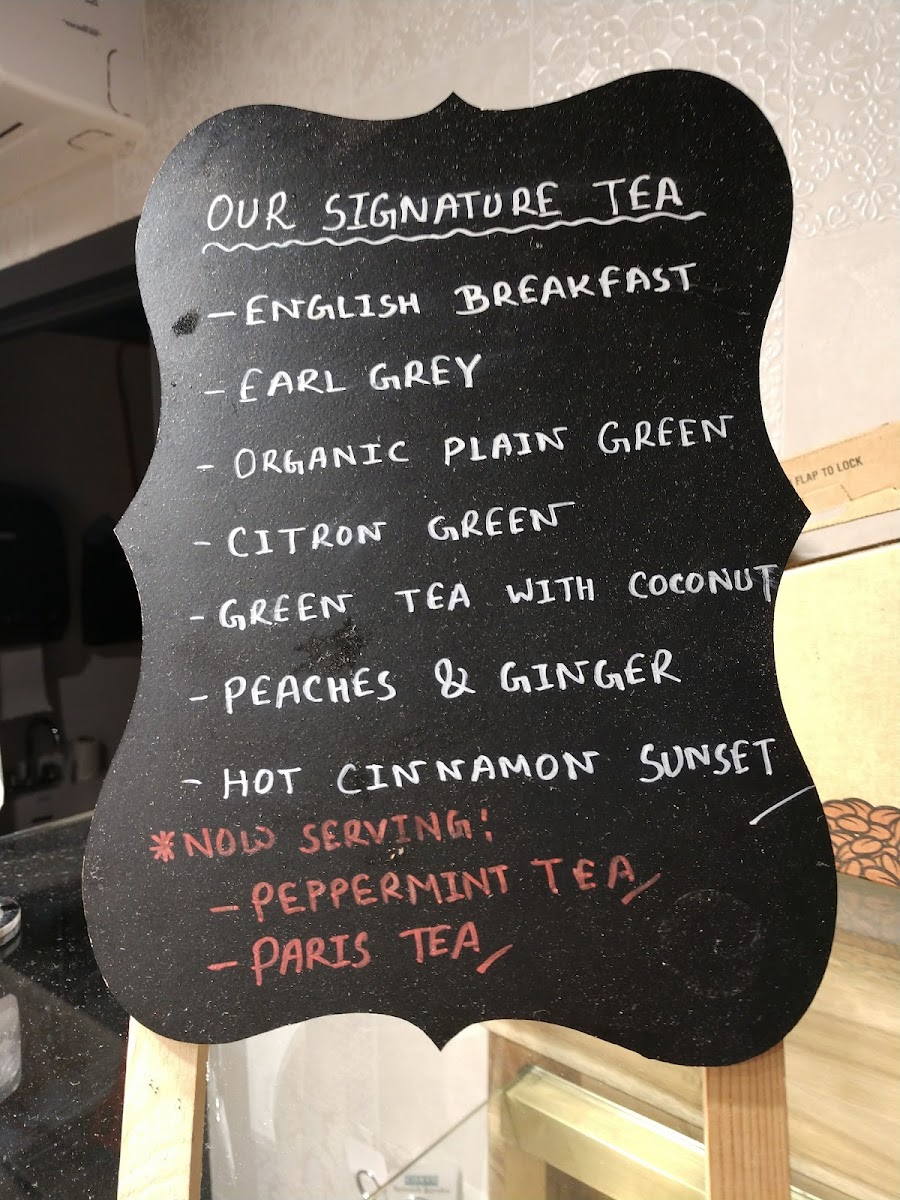 OUR SIGNATURE TEA
- ENGLISH BREAKFAST
- EARL GREY
- ORGANIC PLAIN GREEN
- CITRON GREEN
- GREEN TEA WITH COCONUT
- PEACHES & GINGER
- HOT CINNAMON SUNSET
*NOW SERVING:
- PEPPERMINT TEA
- PARIS TEA
FLAP TO LOCK